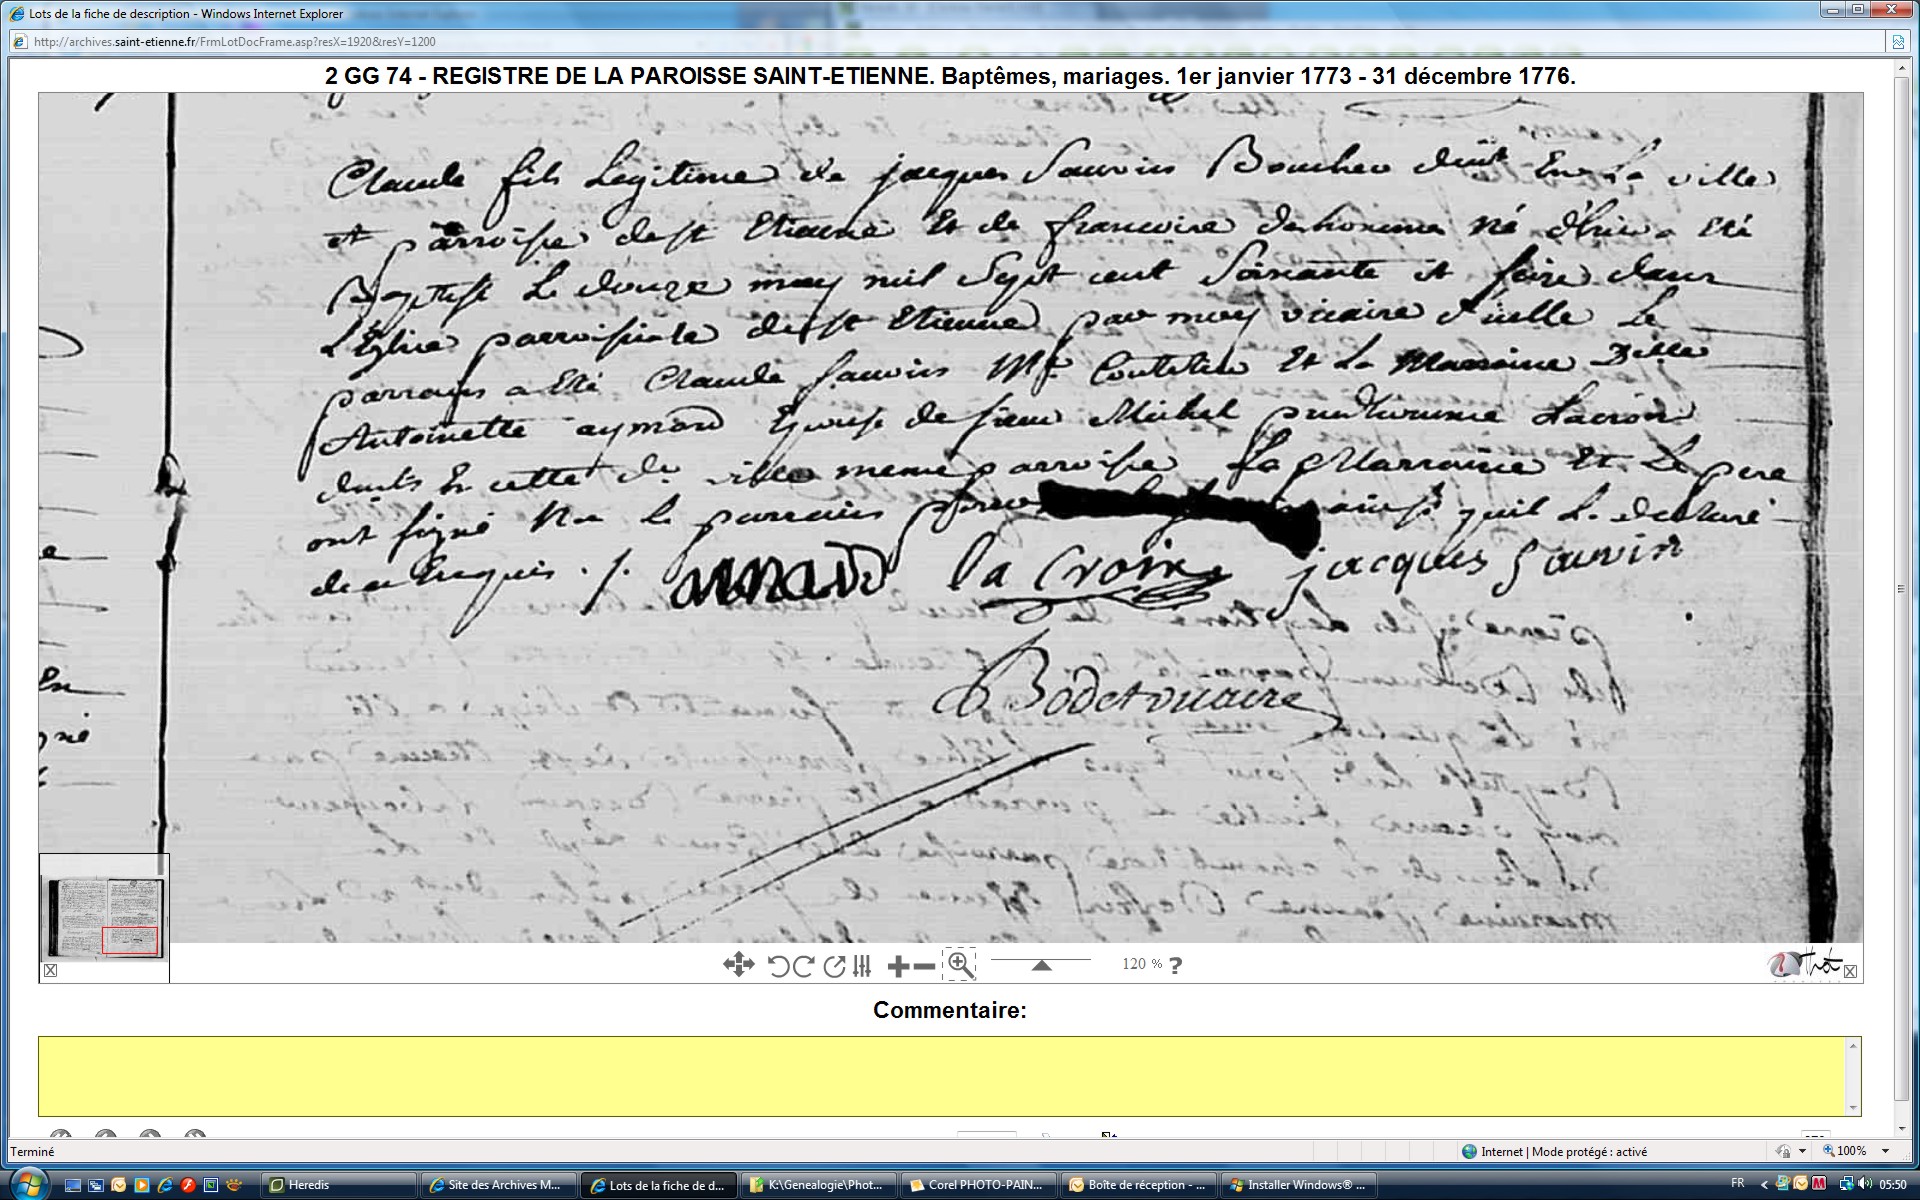 Lots de la fiche de description - Windows Internet Explorer
http://archives.saint-etienne.fr/FrmLotDocFrame.asp?resX=1920&resY=1200
2 GG 74 - REGISTRE DE LA PAROISSE SAINT-ETIENNE. Baptêmes, mariages. 1er janvier 1773 - 31 décembre 1776.
Claude fils Legitime de jacques Sauvin Boucher dmt En La ville
et parroisse de st Etienne Et de francoise né d'hier a Eté
Baptisé Le douze may mil Sept cent Soixante et seize dans
L'Eglise parroissiale de st Etienne par moy vicaire d'icelle Le
parrain a Eté Claude Sauvin Mr Coutelier Et La Marraine Dlle
Antoinette aymard Epouse de sieur Michel prudhomme Lacroix
dmts En cette de ville meme parroisse La Marraine Et Le pere
ont signé Non Le parrain pour ainsi quil L'a declaré
de ce Enquis ./.
la Croix jacques Sauvin
Bodet vicaire
En
gné
120 % ?
Commentaire:
Terminé
Internet | Mode protégé : activé
100%
Heredis
Site des Archives M...
Lots de la fiche de d...
K:\Genealogie\Phot...
Corel PHOTO-PAIN...
Boîte de réception - ...
Installer Windows® ...
FR
05:50